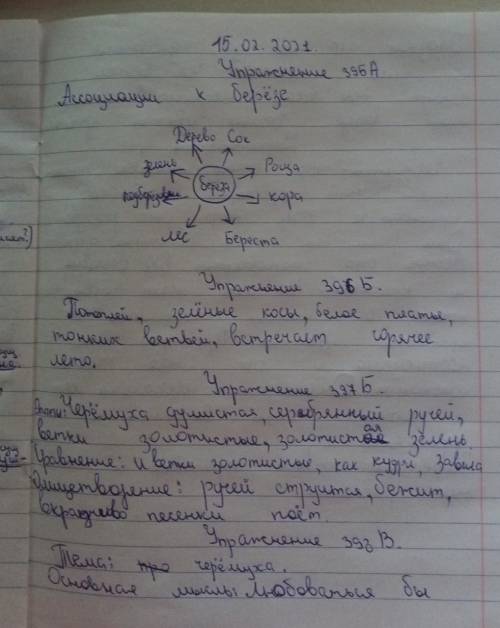 15.02.2021.
Упражнение 396А
Ассоциации к берёзе
Дерево Сок
зелень
Роща
берёза
кора
лес
Береста
Упражнение 396Б.
зелёные косы, белое платье,
тонких ветвей, встречает горячее
лето.
Упражнение 397Б.
Черёмуха душистая, серебрянный ручей,
ветки золотистые, золотистая зелень
Сравнение: и ветки золотистые, как кудри, завила
Олицетворение: ручей струится, бежит,
песенки поёт.
Упражнение 397В.
Тема: черёмуха.
Основная мысль: Любоваться бы